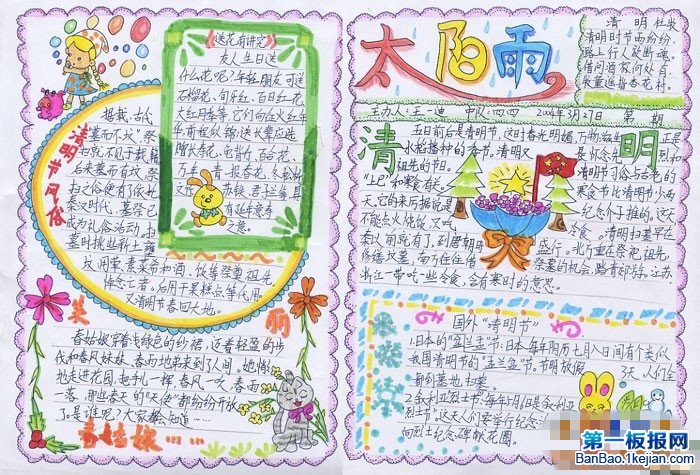 送花有讲究
友人生日送
什么花呢？年轻朋友可送
石榴花、
大红月季等，它们向在火红年
华前程似锦；送长辈应选
万年青、报春花、
有延年意
之意。
清明节风俗
据载，古代
墓而不坟"祭
扫就不见于载籍
后来墓而有坟，祭
扫之俗便有了依托。
秦汉时代，墓祭已
成为礼俗活动，扫
墓时挑些新土壅
坟，用荤、素菜肴和酒、饭等祭奠祖先
悼念亡者，后用干果糕点等代用。
又清明节春回大地。
美丽
春姑娘穿着浅绿色的纱裙，迈着轻盈的步
伐和春风妹妹、春雨地弟来到了人间。她悄悄
地走进花园，把手儿一挥，春风一吹，春雨一
落，那些春天的"天使"都纷纷开放
了。是谁呢？大家都知道……
春姑娘……
太阳雨
清 明 杜牧
清明时节雨纷纷，
路上行人欲断魂。
借问酒家何处有，
牧童遥指杏花村。
主办人：王一迪 中队：四四 2009年3月27日 第 期
清明
五日前后是清明节，这时春光明媚，万物
水稻播种的季节。清明又
祖先的节日。
"上巳"和寒食有关。
天，它的来历据说是
不能点火烧饭，又叫
秦以前就有了，到唐朝
修缮坟墓，而方往往借
浙江一带吃一些冷食，含有寒时的意思。
是悼念先烈和
清明习俗与古老的
寒食节比清明节少两
纪念介子推的，这天
食。清明扫墓早在
盛行。北方重在祭祀祖先，
祭墓的机会，踏青郊游，江苏、
国外"清明节"
1.日本的"盂兰盆"节：日本每年阴历七月八日间有个类似
我国清明节的"盂兰盆"节。节期放假 3天，人们全
都到墓地扫墓。
烈士节"这天人们要举行纪念
向烈士纪念碑献花圈。
第一板报网
BanBao.1kejian.com